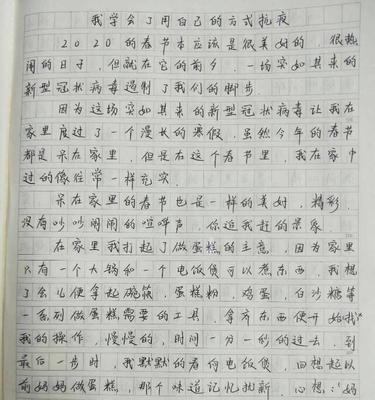 我学会了用自己的方式抗疫
2020的春节本应该是很美好的、很热
闹的日子，但就在它的前夕，一场突如其来的
新型冠状病毒遏制了我们的脚步。
因为这场突如其来的新型冠状病毒让我在
家里度过了一个漫长的寒假，虽然今年的春节
都是呆在家里，但是在这个春节里，我在家中
过的像往常一样充实。
呆在家里的春节也是一样的美好，精彩，
没有吵吵闹闹的喧哗声，你追我赶的景象。
在家里我打起了做蛋糕的主意，因为家里
只有一个大锅和一个电饭煲可以煮东西，我想
了会儿便拿起碗筷，蛋糕粉，鸡蛋，白沙糖等
一系列做蛋糕需要的工具，拿齐东西便开始我
我的操作，慢慢的，时间一分一秒的过去，到
最后一步时，我默默的看向电饭煲，回想起以
前妈妈做蛋糕，那个味道记忆犹新，心想：“妈